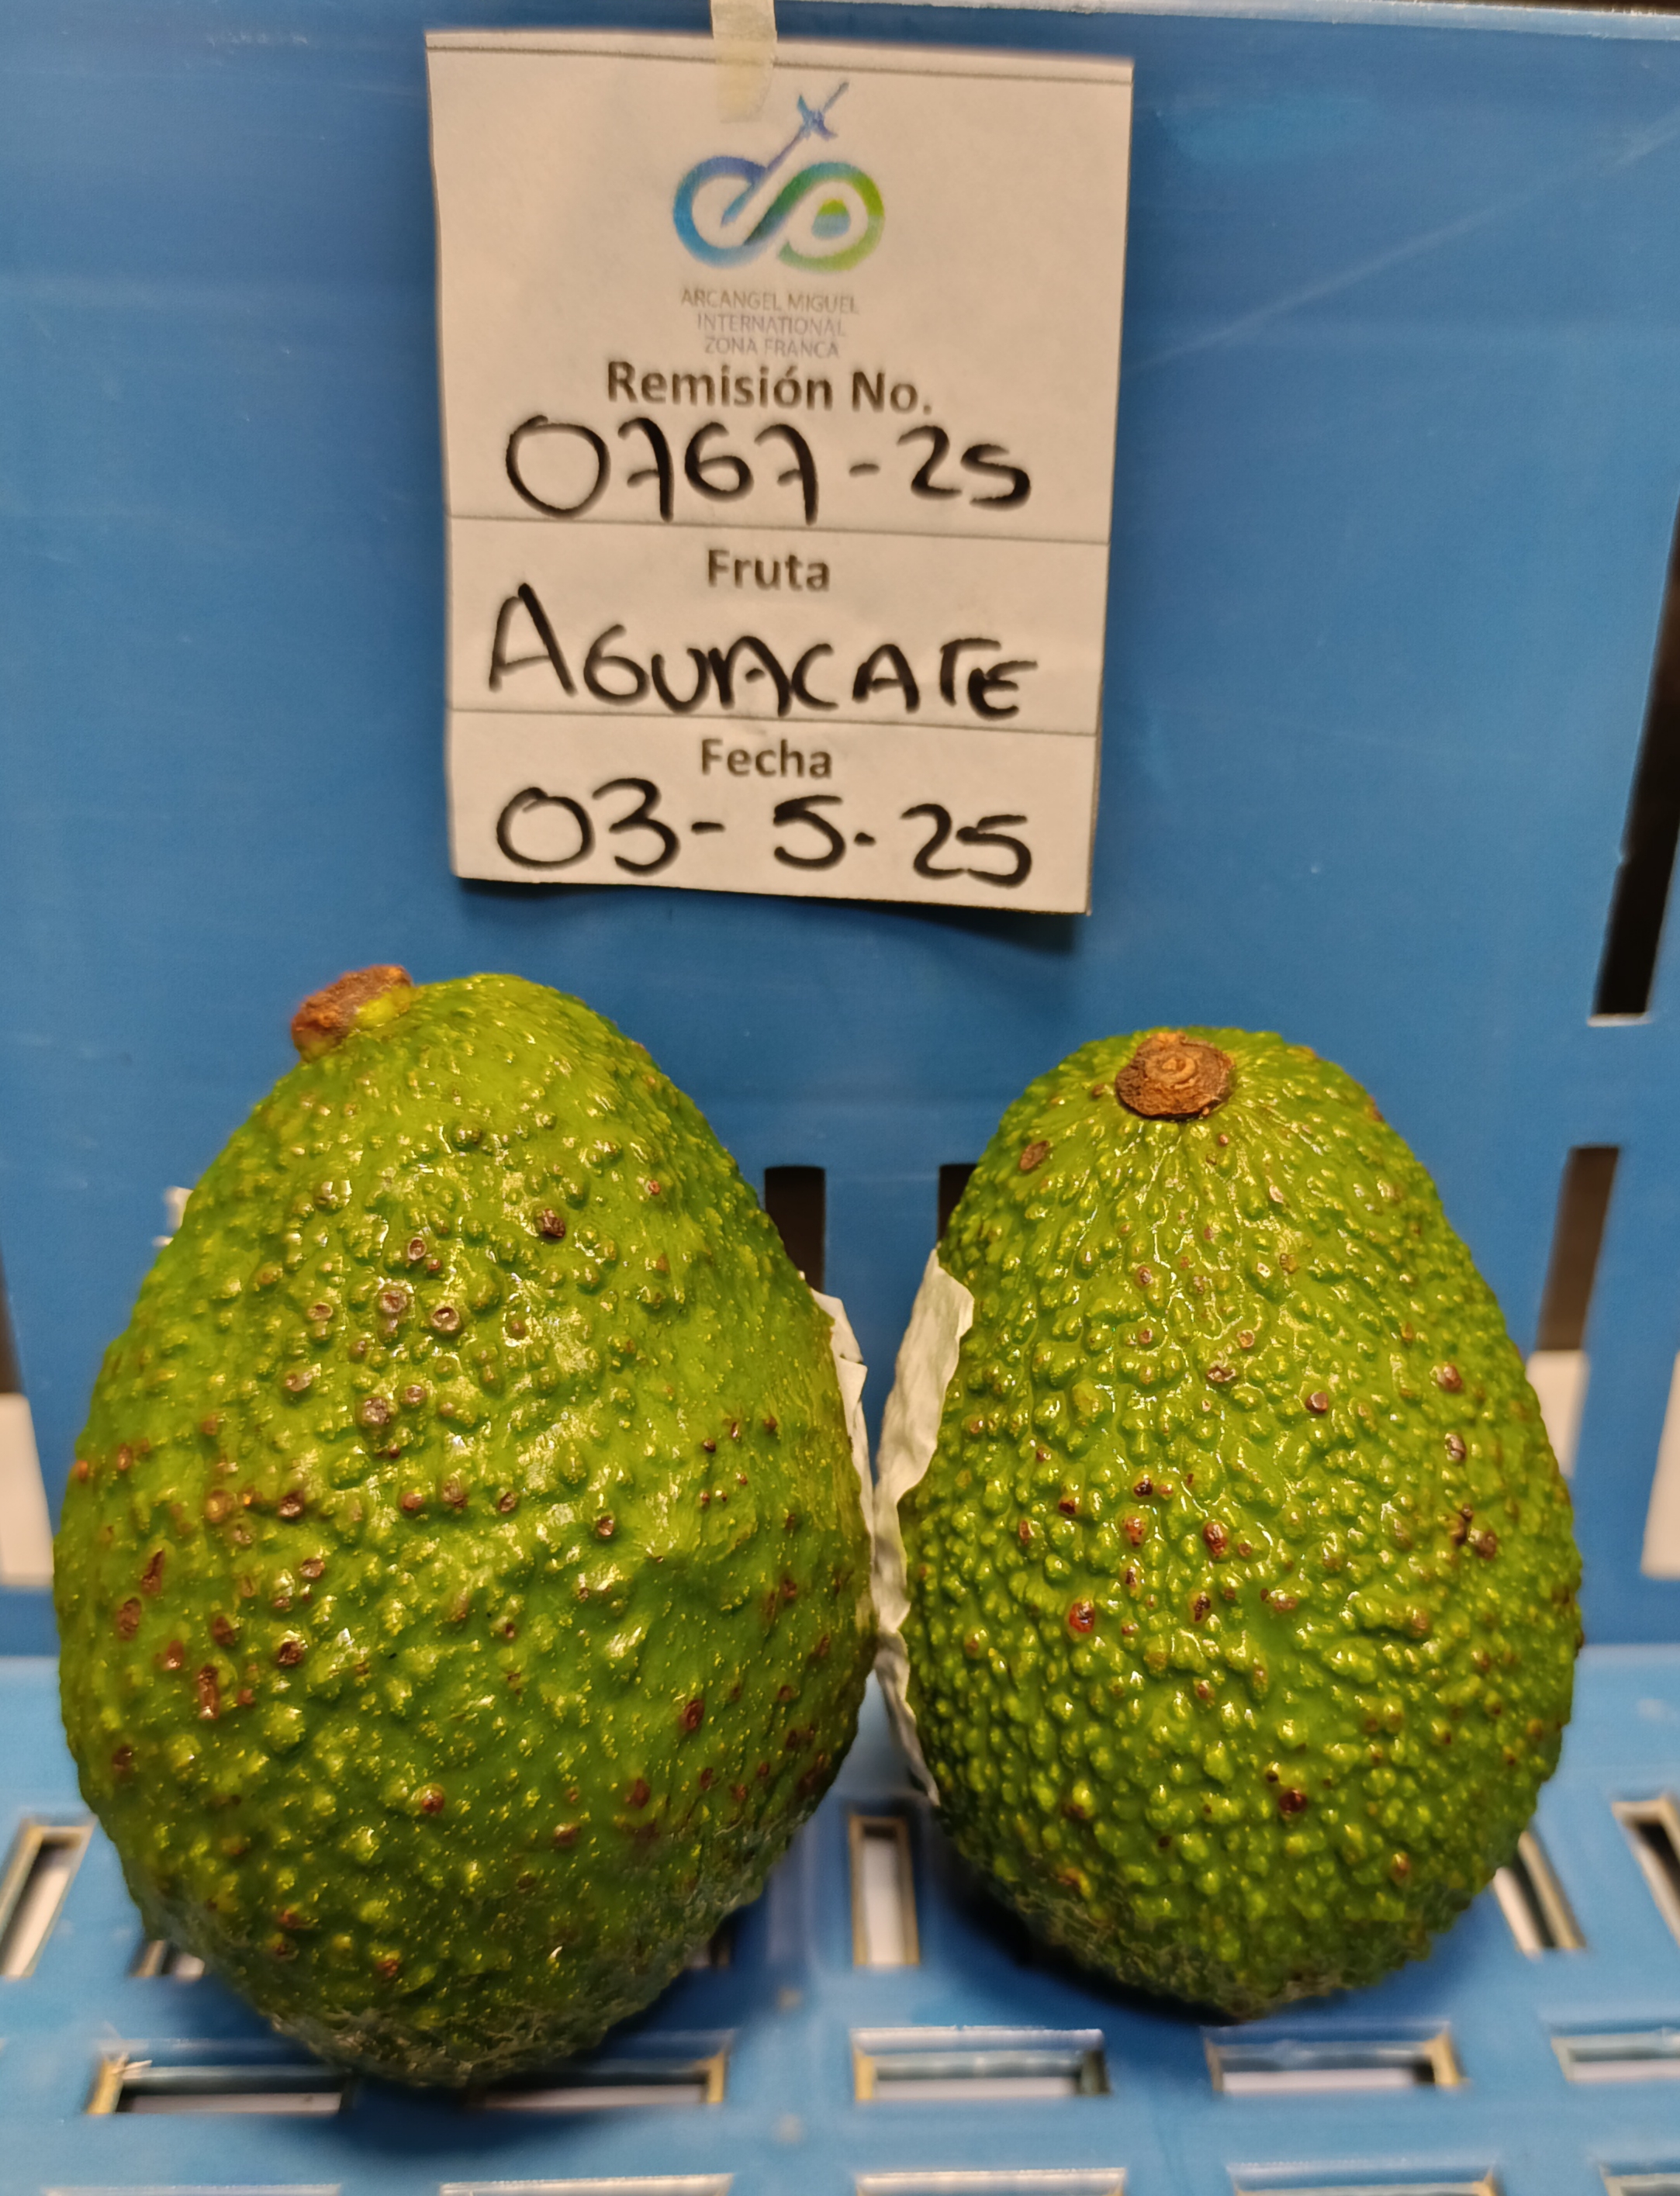 ARCANGEL MIGUEL
INTERNATIONAL
ZONA FRANCA
Remisión No.
0767-25
Fruta
AGUACATE
Fecha
03-5-25